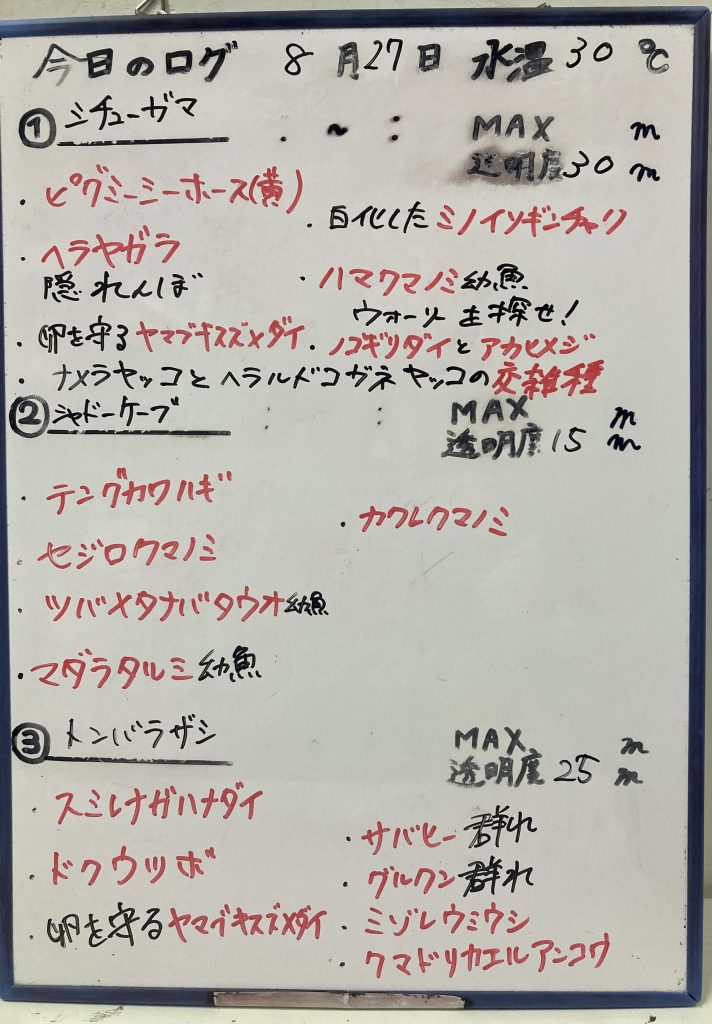 今日のログ 8月27日 水温30℃
① シチューガマ . ~ : MAX m
透明度30m
・ピグミーシーホース(黄)
・ヘラヤガラ
隠れんぼ
・卵を守るヤマブキスズメダイ
・白化したミノイソギンチャク
・ハマクマノミ幼魚
ウォーリーを探せ!
・ノコギリダイとアカヒメジ
・ナメラヤッコとヘラルドコガネヤッコの交雑種
② シャドーケーブ : : MAX m
透明度15m
・テングカワハギ
・セジロクマノミ
・ツバメタナバタウオ幼魚
・マダラタルミ幼魚
・カクレクマノミ
③ トンバラザシ MAX m
透明度25m
・スミレナガハナダイ
・ドクウツボ
・卵を守るヤマブキスズメダイ
・サバヒー群れ
・グルクン群れ
・ミゾレウミウシ
・クマドリカエルアンコウ